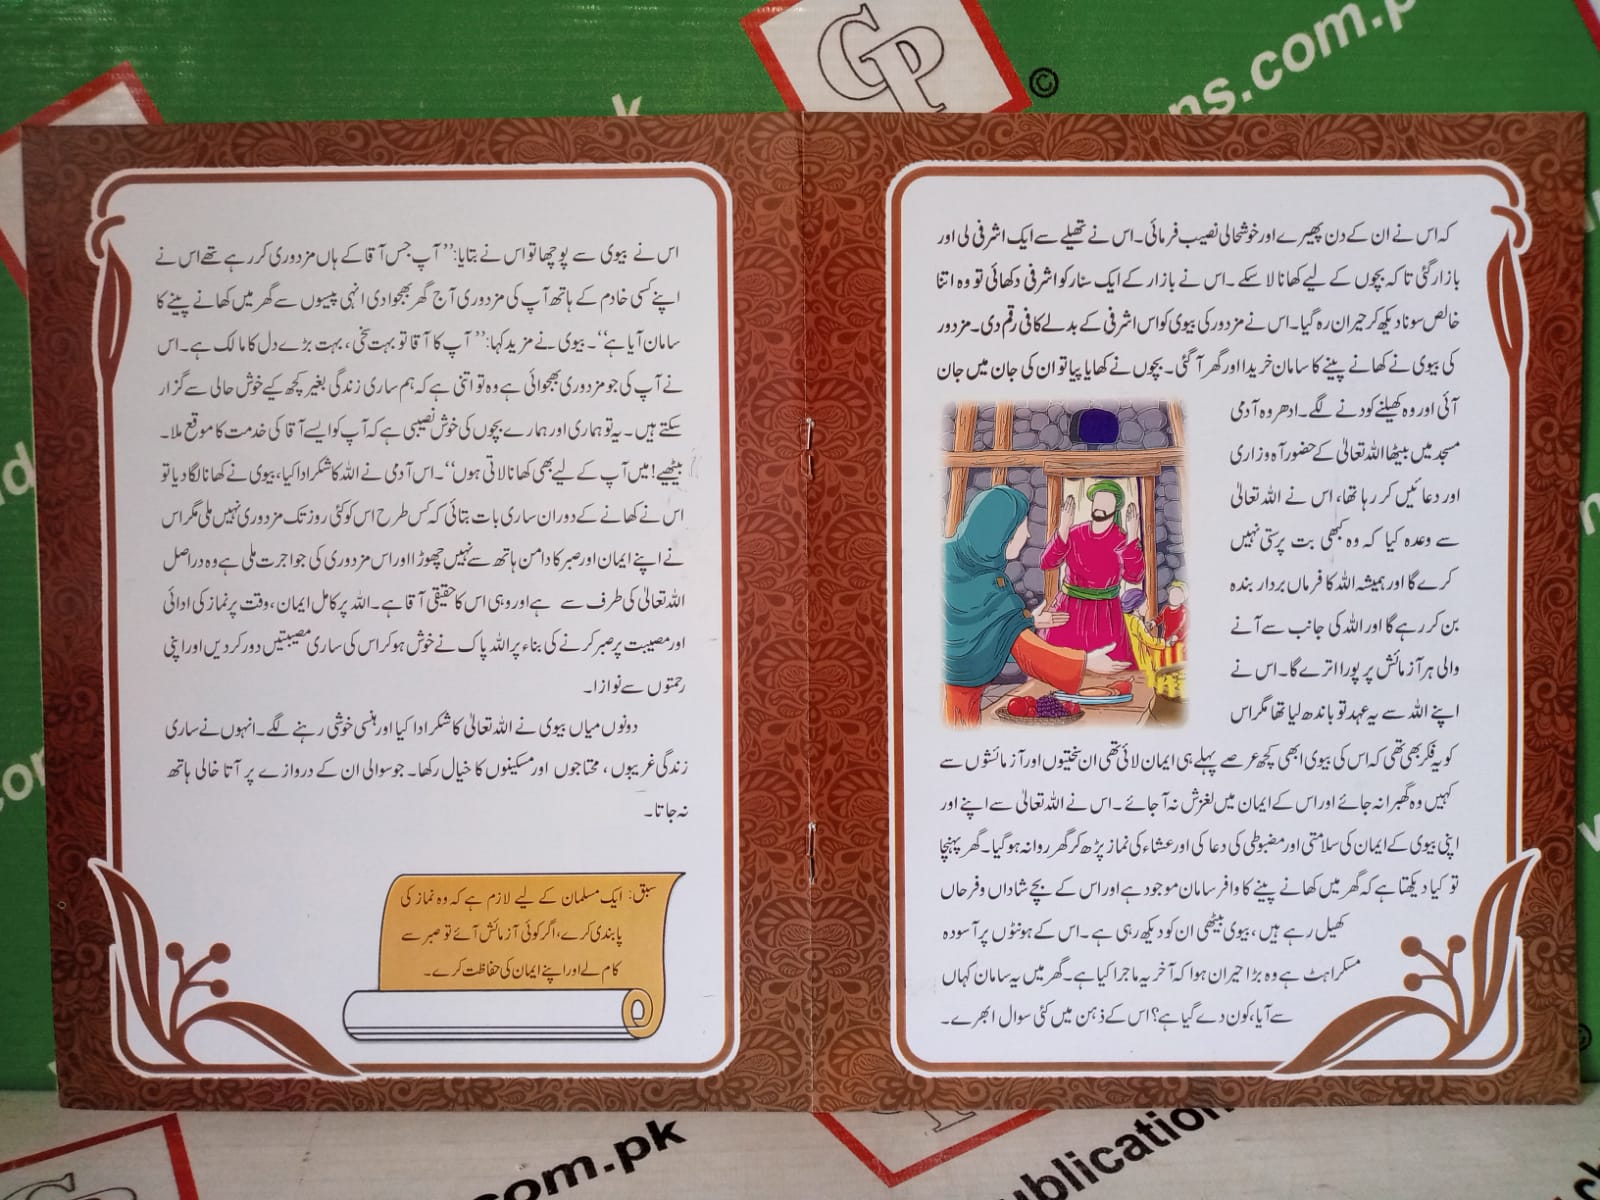 کہ اس نے ان کے دن پھیرے اور خوشحالی نصیب فرمائی۔ اس نے تھیلے سے ایک اشرفی لی اور
بازار گئی تاکہ بچوں کے لیے کھانا لا سکے۔ اس نے بازار کے ایک سنار کو اشرفی دکھائی تو وہ اتنا
خالص سونا دیکھ کر حیران رہ گیا۔ اس نے مزدور کی بیوی کو اس اشرفی کے بدلے کافی رقم دی۔ مزدور
کی بیوی نے کھانے پینے کا سامان خریدا اور گھر آ گئی۔ بچوں نے کھایا پیا تو ان کی جان میں جان
آئی اور وہ کھیلنے کودنے لگے۔ ادھر وہ آدمی
مسجد میں بیٹھا اللہ تعالیٰ کے حضور آہ وزاری
اور دعائیں کر رہا تھا، اس نے اللہ تعالیٰ
سے وعدہ کیا کہ وہ کبھی بت پرستی نہیں
کرے گا اور ہمیشہ اللہ کا فرماں بردار بندہ
بن کر رہے گا اور اللہ کی جانب سے آنے
والی ہر آزمائش پر پورا اترے گا۔ اس نے
اپنے اللہ سے یہ عہد تو باندھ لیا تھا مگر اس
کو یہ فکر بھی تھی کہ اس کی بیوی ابھی کچھ عرصے پہلے ہی ایمان لائی تھی ان سختیوں اور آزمائشوں سے
کہیں وہ گھبرا نہ جائے اور اس کے ایمان میں لغزش نہ آ جائے۔ اس نے اللہ تعالیٰ سے اپنے اور
اپنی بیوی کے ایمان کی سلامتی اور مضبوطی کی دعا کی اور عشاء کی نماز پڑھ کر گھر روانہ ہو گیا۔ گھر پہنچا
تو کیا دیکھتا ہے کہ گھر میں کھانے پینے کا وافر سامان موجود ہے اور اس کے بچے شاداں و فرحاں
کھیل رہے ہیں، بیوی بیٹھی ان کو دیکھ رہی ہے۔ اس کے ہونٹوں پر آسودہ
مسکراہٹ ہے وہ بڑا حیران ہوا کہ آخر یہ ماجرا کیا ہے۔ گھر میں یہ سامان کہاں
سے آیا، کون دے گیا ہے؟ اس کے ذہن میں کئی سوال ابھرے۔
اس نے بیوی سے پوچھا تو اس نے بتایا: ”آپ جس آقا کے ہاں مزدوری کر رہے تھے اس نے
اپنے کسی خادم کے ہاتھ آپ کی مزدوری آج گھر بھجوا دی انہی پیسوں سے گھر میں کھانے پینے کا
سامان آیا ہے“۔ بیوی نے مزید کہا: ”آپ کا آقا تو بہت سخی، بہت بڑے دل کا مالک ہے۔ اس
نے آپ کی جو مزدوری بھجوائی ہے وہ تو اتنی ہے کہ ہم ساری زندگی بغیر کچھ کیے خوش حالی سے گزار
سکتے ہیں۔ یہ تو ہماری اور ہمارے بچوں کی خوش نصیبی ہے کہ آپ کو ایسے آقا کی خدمت کا موقع ملا۔
بیٹھیے! میں آپ کے لیے بھی کھانا لاتی ہوں“۔ اس آدمی نے اللہ کا شکر ادا کیا، بیوی نے کھانا لگا دیا تو
اس نے کھانے کے دوران ساری بات بتائی کہ کس طرح اس کو کئی روز تک مزدوری نہیں ملی مگر اس
نے اپنے ایمان اور صبر کا دامن ہاتھ سے نہیں چھوڑا اور اس مزدوری کی جو اجرت ملی ہے وہ دراصل
اللہ تعالیٰ کی طرف سے ہے اور وہی اس کا حقیقی آقا ہے۔ اللہ پر کامل ایمان، وقت پر نماز کی ادائی
اور مصیبت پر صبر کرنے کی بناء پر اللہ پاک نے خوش ہو کر اس کی ساری مصیبتیں دور کر دیں اور اپنی
رحمتوں سے نوازا۔
دونوں میاں بیوی نے اللہ تعالیٰ کا شکر ادا کیا اور ہنسی خوشی رہنے لگے۔ انہوں نے ساری
زندگی غریبوں، محتاجوں اور مسکینوں کا خیال رکھا۔ جو سوالی ان کے دروازے پر آتا خالی ہاتھ
نہ جاتا۔
سبق: ایک مسلمان کے لیے لازم ہے کہ وہ نماز کی
پابندی کرے، اگر کوئی آزمائش آئے تو صبر سے
کام لے اور اپنے ایمان کی حفاظت کرے۔
GP ©
ns.com.p
.k
com.pk
ublication